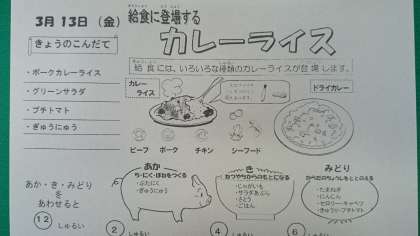 3月 13日（金）
給食に登場する
カレーライス
きょうのこんだて
給食には、いろいろな種類のカレーライスが登場します。
・ポークカレーライス
・グリーンサラダ
・プチトマト
・ぎゅうにゅう
カレーライス
ドライカレー
ビーフ ポーク チキン シーフード
あか・き・みどりを
あわせると
12 しゅるい
あか
ち・にく・ほねをつくる
・ぶたにく
・ぎゅうにゅう
2 しゅるい
き
ねつやちからのもとになる
・じゃがいも
・サラダあぶら
・さとう
・ごはん
4 しゅるい
みどり
からだのちょうしをととのえる
・たまねぎ
・にんじん
・セロリー・キャベツ
・きゅうり・プチトマト
6 しゅるい